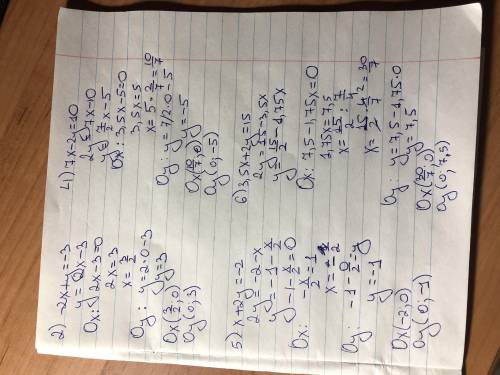 2) -2x+y=-3
y=2x-3
Ox: 2x-3=0
2x=3
x=3/2
Oy: y=2·0-3
y=3
Ox(3/2,0)
Oy(0;3)
5) x+2y=-2
2y=-2-x
y=-1-x/2
Ox: -1-x/2=0
-x/2=1
x=-2
Oy: -1-0/2=y
y=-1
Ox(-2,0)
Oy(0;-1)
4) 7x-2y=10
2y=7x-10
y=7/2x-5
Ox: 3,5x-5=0
3,5x=5
x=5·2/7=10/7
Oy: y=7/2·0-5
y=-5
Ox(10/7,0)
Oy(0;-5)
6) 3,5x+2y=15
2y=15-3,5x
y=15/2-1,75x
Ox: 7,5-1,75x=0
1,75x=7,5
x=15/2:7/4
x=15/2·4/7=30/7
Oy: y=7,5-1,75·0
y=7,5
Ox(30/7,0)
Oy(0;7,5)